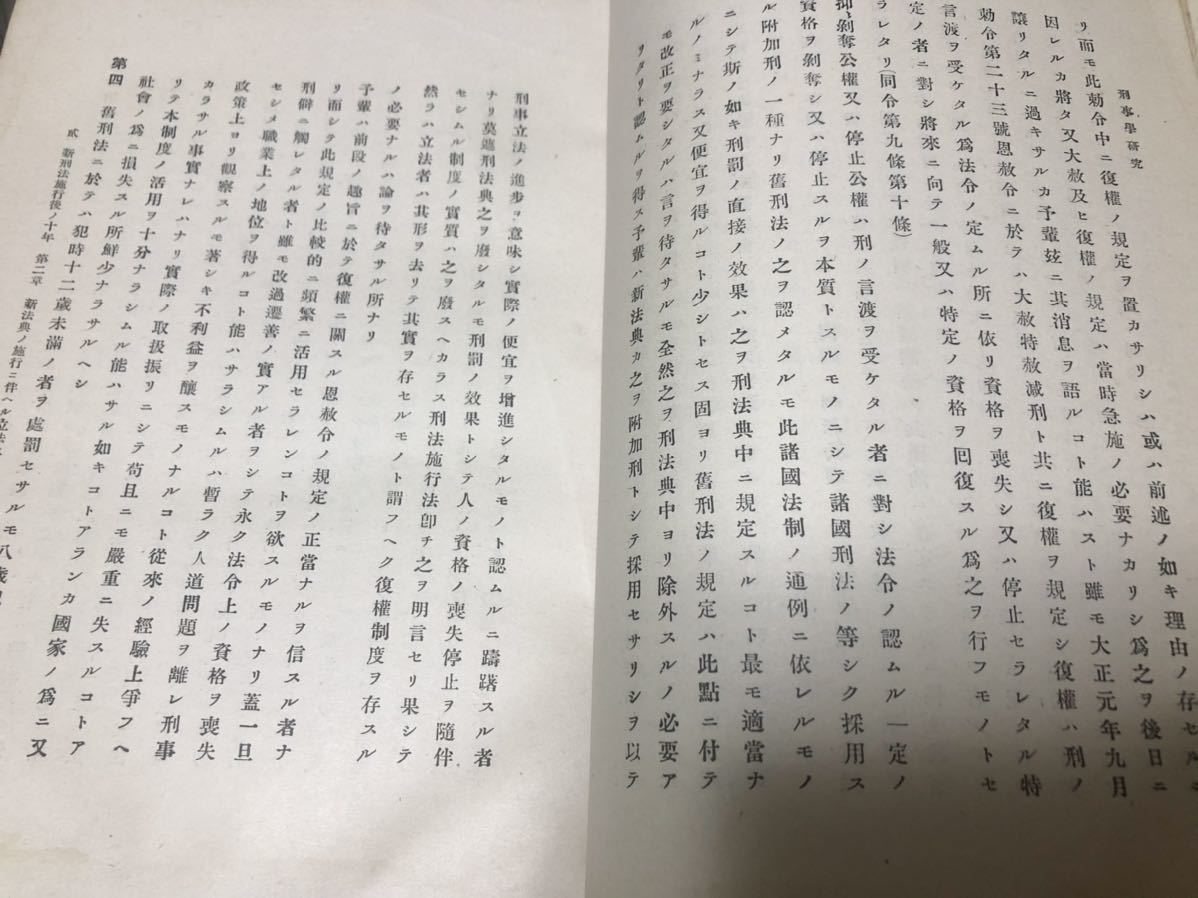 刑事學研究
リ而モ此勅令中ニ復權ノ規定ヲ置カサリシハ或ハ前述ノ如キ理由ノ存セル
因レルカ將タ又大赦及ヒ復權ノ規定ハ當時急施ノ必要ナカリシ爲之ヲ後日ニ
讓リタルニ過キサルカ予輩玆ニ其消息ヲ語ルコト能ハスト雖モ大正元年九月
勅令第二十三號恩赦令ニ於テハ大赦特赦減刑ト共ニ復權ヲ規定シ復權ハ刑ノ
言渡ヲ受ケタル爲法令ノ定ムル所ニ依リ資格ヲ喪失シ又ハ停止セラレタル特
定ノ者ニ對シ將來ニ向テ一般又ハ特定ノ資格ヲ囘復スル爲之ヲ行フモノトセ
ラレタリ(同令第九條第十條)
抑〻剝奪公權又ハ停止公權ハ刑ノ言渡ヲ受ケタル者ニ對シ法令ノ認ムル一定ノ
資格ヲ剝奪シ又ハ停止スルヲ本質トスルモノニシテ諸國刑法ノ等シク採用ス
ル附加刑ノ一種ナリ舊刑法ノ之ヲ認メタルモ此諸國法制ノ通例ニ依レルモノ
ニシテ斯ノ如キ刑罰ノ直接ノ效果ハ之ヲ刑法典中ニ規定スルコト最モ適當ナ
ルノミナラス又便宜ヲ得ルコト少シトセス固ヨリ舊刑法ノ規定ハ此點ニ付テ
モ改正ヲ要シタルハ言ヲ待タサルモ全然之ヲ刑法典中ヨリ除外スルノ必要ア
リタリト認ムルヲ得ス予輩ハ新法典カ之ヲ附加刑トシテ採用セサリシヲ以テ
刑事立法ノ進步ヲ意味シ實際ノ便宜ヲ增進シタルモノト認ムルニ躊躇スル者
ナリ莫遮刑法典之ヲ廢シタルモ刑罰ノ效果トシテ人ノ資格ノ喪失停止ヲ隨伴
セシムル制度ノ實質ハ之ヲ廢スヘカラス刑法施行法卽チ之ヲ明言セリ果シテ
然ラハ立法者ハ其形ヲ去リテ其實ヲ存セルモノト謂フヘク復權制度ヲ存スル
ノ必要ナルハ論ヲ待タサル所ナリ
予輩ハ前段ノ趣旨ニ於テ復權ニ關スル恩赦令ノ規定ノ正當ナルヲ信スル者ナ
リ而シテ此規定ノ比較的ニ頻繁ニ活用セラレンコトヲ欲スルモノナリ蓋一旦
刑僻ニ觸レタル者ト雖モ改過遷善ノ實アル者ヲシテ永ク法令上ノ資格ヲ喪失
セシメ職業上ノ地位ヲ得ルコト能ハサラシムルハ暫ラク人道問題ヲ離レ刑事
政策上ヨリ觀察スルモ著シキ不利益ヲ釀スモノナルコト從來ノ經驗上爭フヘ
カラサル事實ナレハナリ實際ノ取扱振リニシテ苟且ニモ嚴重ニ失スルコトア
リテ本制度ノ活用ヲ十分ナラシムル能ハサル如キコトアランカ國家ノ爲ニ又
社會ノ爲ニ損失スル所鮮少ナラサルヘシ
第四 舊刑法ニ於テハ犯時十二歲未滿ノ者ヲ處罰セサルモ八歲
貳 新刑法施行後ノ十年 第二章 新法典ノ施行ニ伴ヘル立法